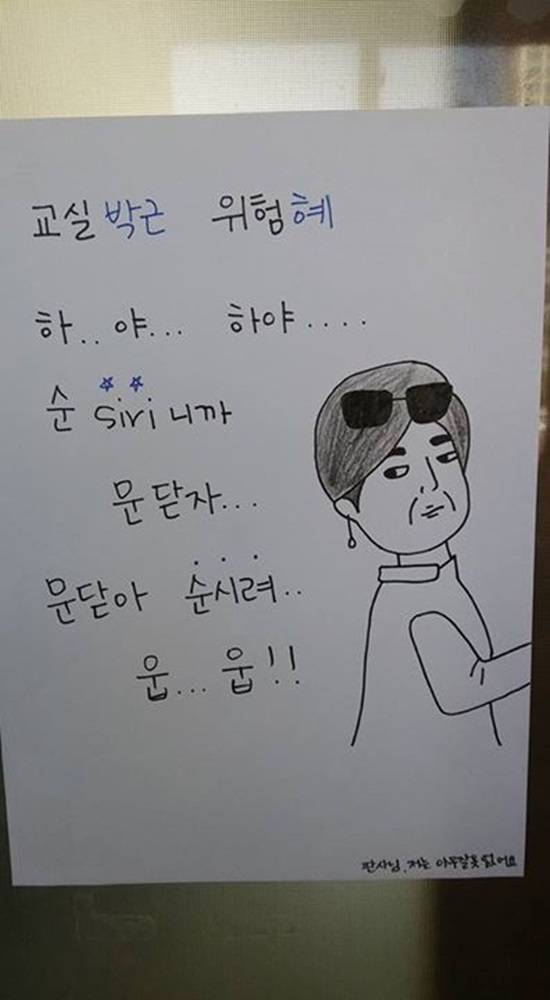 교실박근 위험혜
하..야... 하야....
순 siri니까
문닫자...
문닫아 순시려..
웁...웁!!
판사님, 저는 아무잘못 없어요